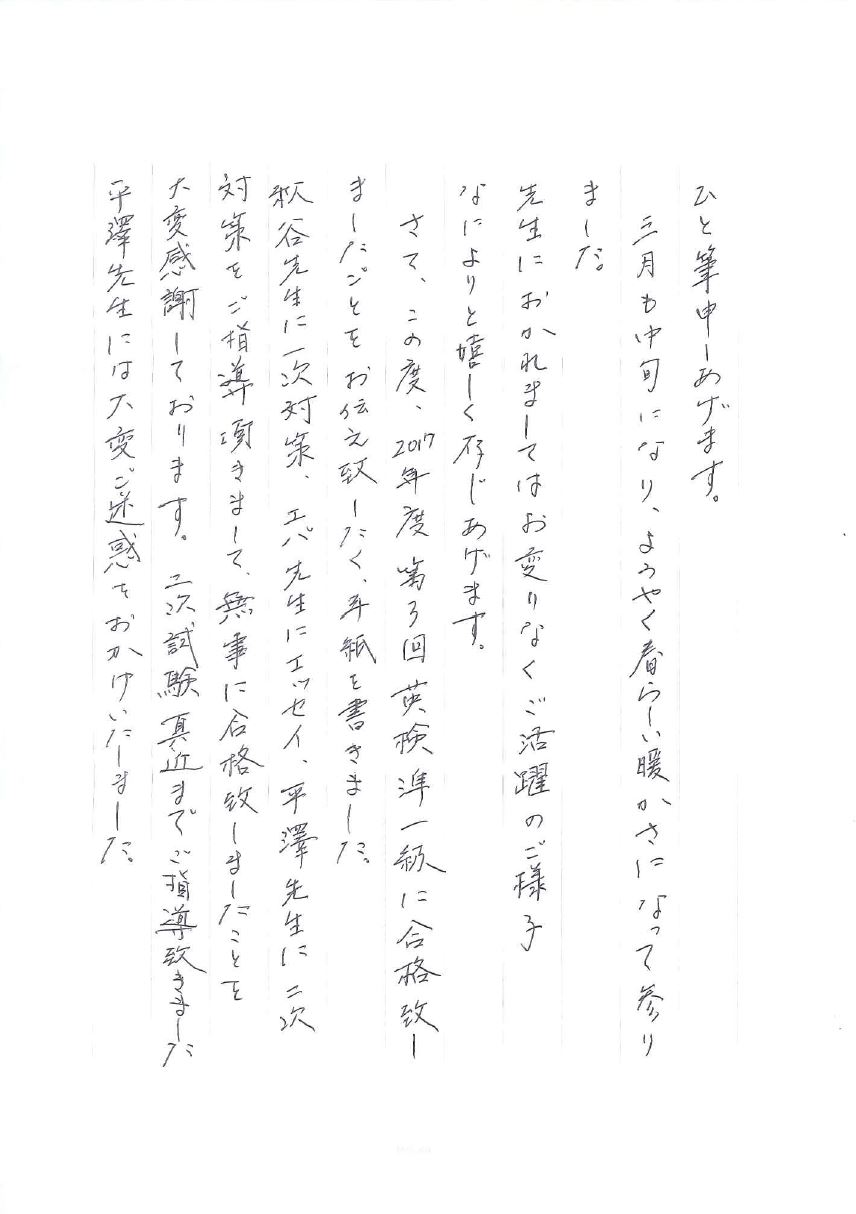 ひと筆申しあげます。
三月も中旬になり、ようやく春らしい暖かさになって参り
ました。
先生におかれましてはお変りなくご活躍のご様子
なによりと嬉しく存じあげます。
さて、この度、2017年度第3回英検準一級に合格致し
ましたことをお伝え致したく、手紙を書きました。
秋谷先生に一次対策、エバ先生にエッセイ、平澤先生に二次
対策をご指導頂きまして、無事に合格致しましたことを
大変感謝しております。二次試験真近までご指導致きました
平澤先生には大変ご迷惑をおかけいたしました。